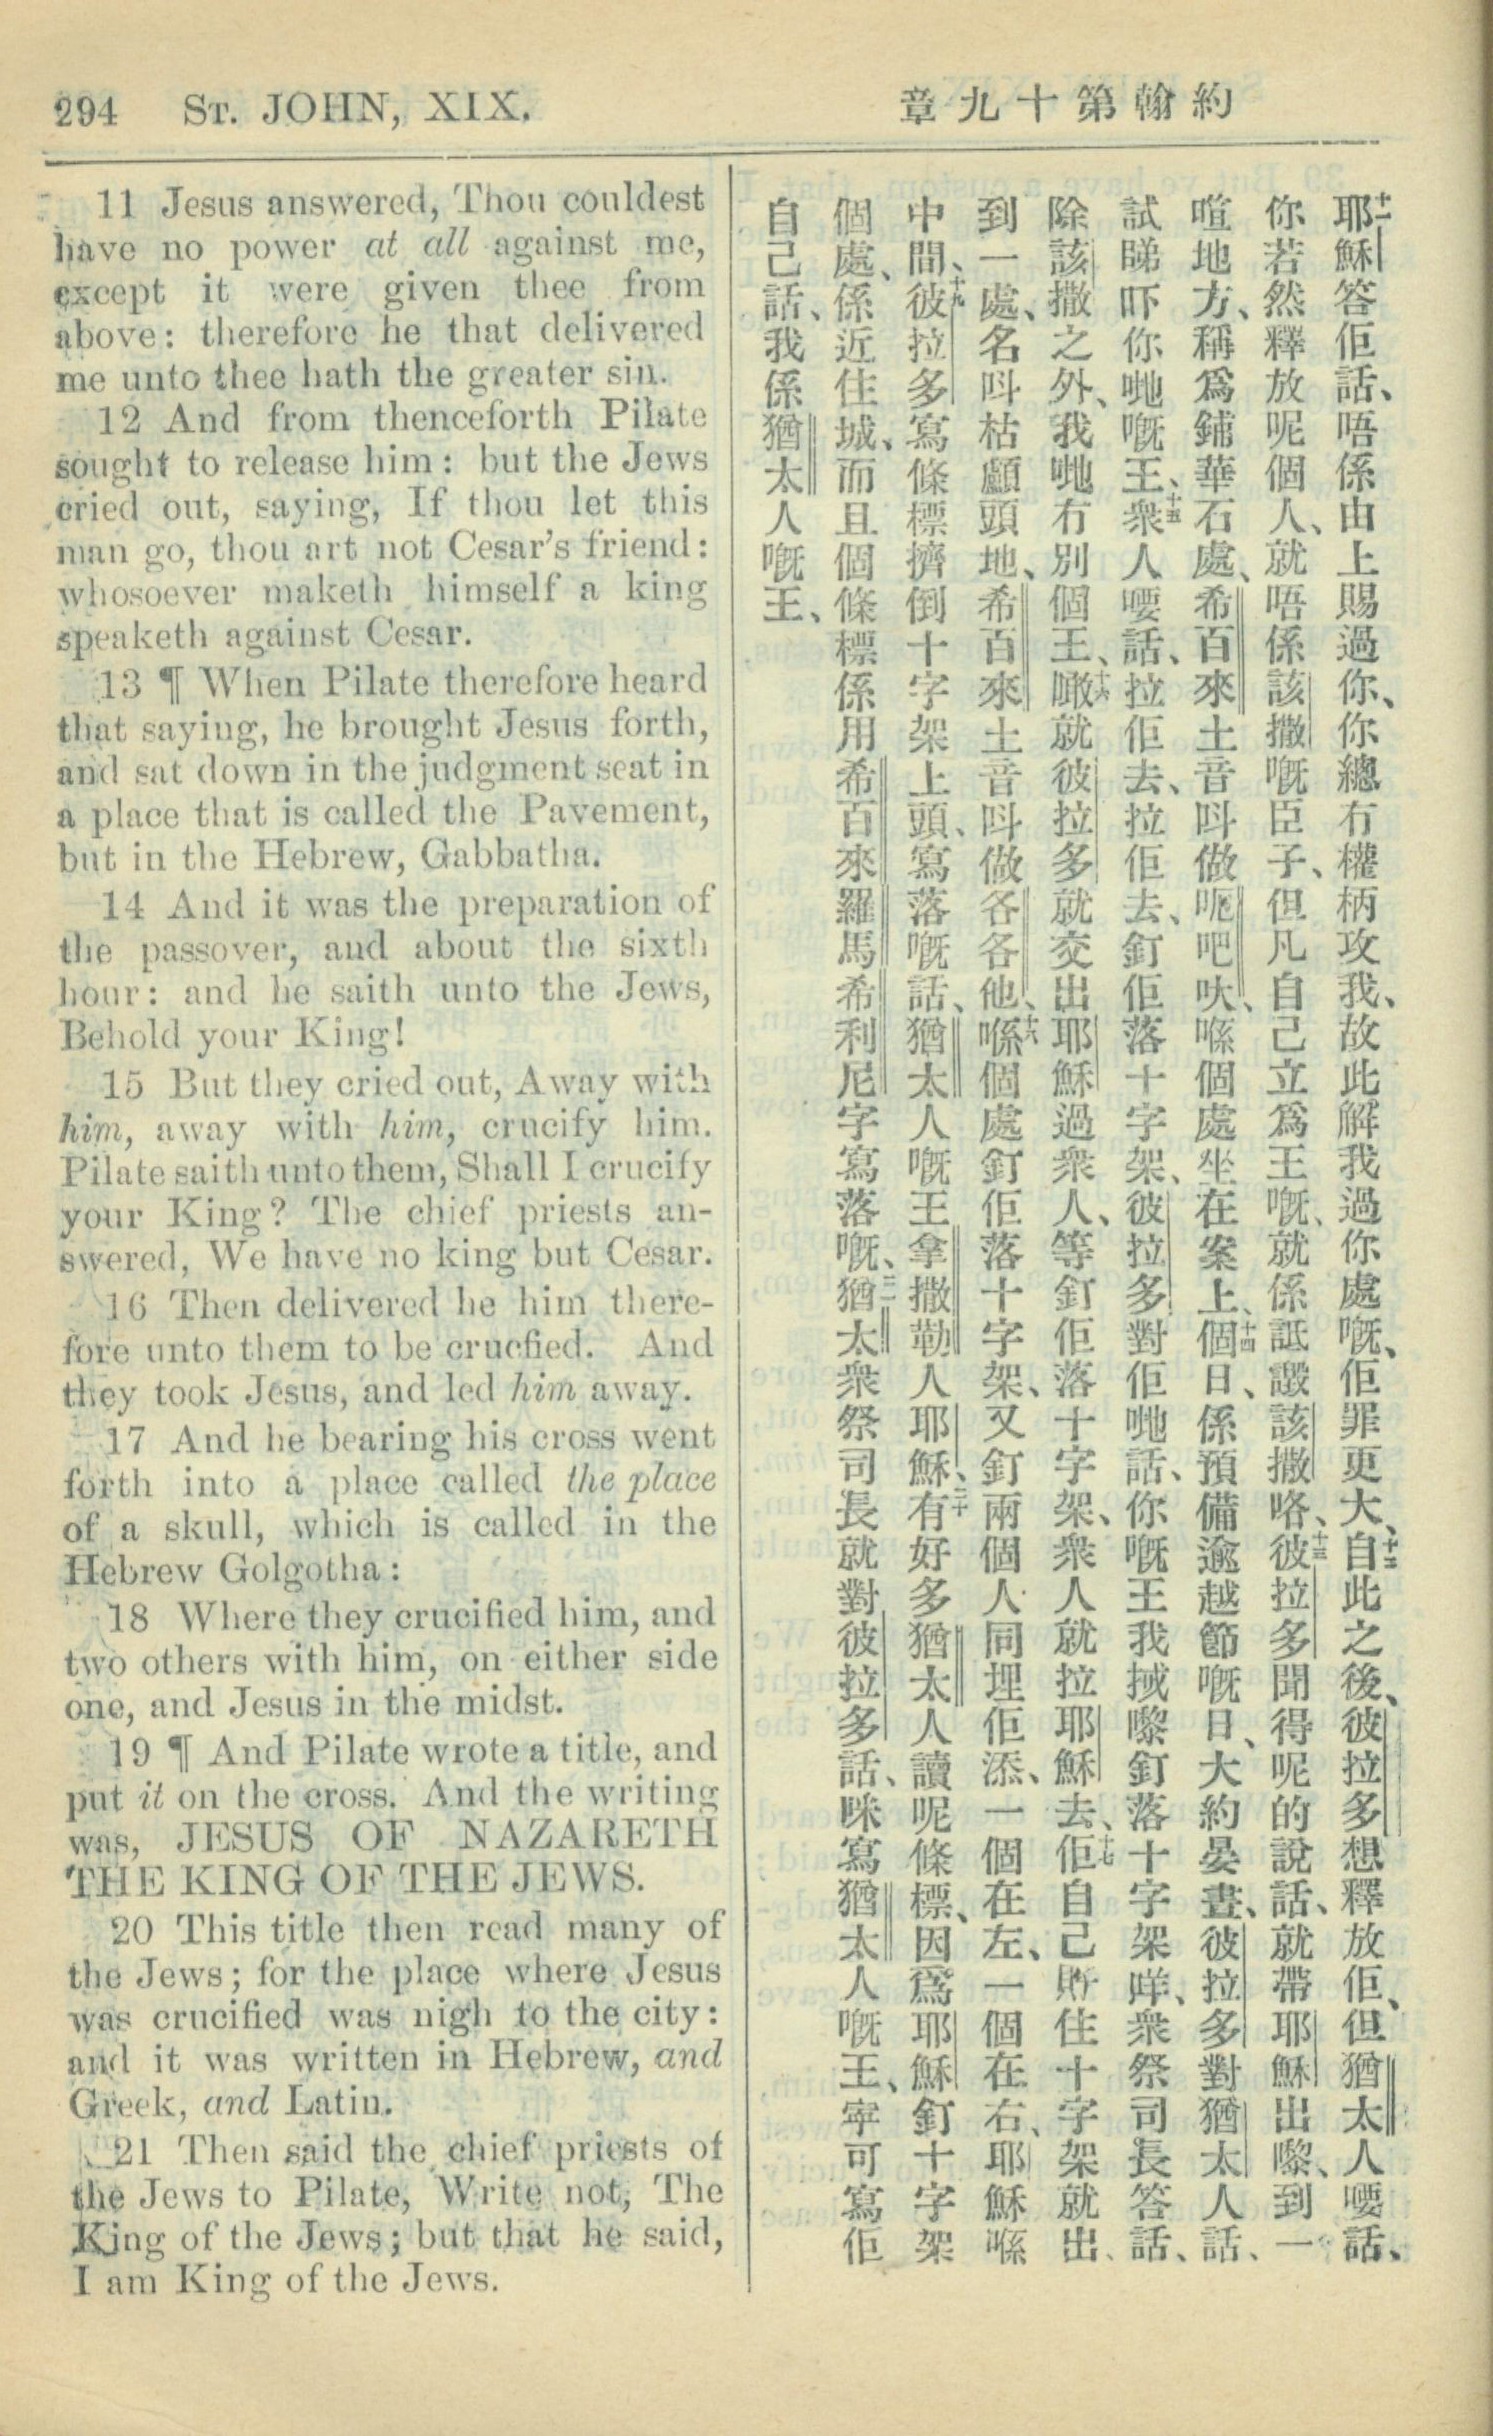 294 St. JOHN, XIX.
約翰第十九章
11 Jesus answered, Thou couldest
have no power at all against me,
except it were given thee from
above: therefore he that delivered
me unto thee hath the greater sin.
12 And from thenceforth Pilate
sought to release him: but the Jews
cried out, saying, If thou let this
man go, thou art not Cesar's friend:
whosoever maketh himself a king
speaketh against Cesar.
13 ¶ When Pilate therefore heard
that saying, he brought Jesus forth,
and sat down in the judgment seat in
a place that is called the Pavement,
but in the Hebrew, Gabbatha.
14 And it was the preparation of
the passover, and about the sixth
hour: and he saith unto the Jews,
Behold your King!
15 But they cried out, Away with
him, away with him, crucify him.
Pilate saith unto them, Shall I crucify
your King? The chief priests an-
swered, We have no king but Cesar.
16 Then delivered he him there-
fore unto them to be crucfied. And
they took Jesus, and led him away.
17 And he bearing his cross went
forth into a place called the place
of a skull, which is called in the
Hebrew Golgotha:
18 Where they crucified him, and
two others with him, on either side
one, and Jesus in the midst.
19 ¶ And Pilate wrote a title, and
put it on the cross. And the writing
was, JESUS OF NAZARETH
THE KING OF THE JEWS.
20 This title then read many of
the Jews; for the place where Jesus
was crucified was nigh to the city:
and it was written in Hebrew, and
Greek, and Latin.
21 Then said the chief priests of
the Jews to Pilate, Write not, The
King of the Jews; but that he said,
I am King of the Jews.
十一耶穌答佢話、唔係由上賜過你、你總冇權柄攻我、故此解我過你處嘅、佢罪更大、十二自此之後、彼拉多想釋放佢、但猶太人嘤話、
你若然釋放呢個人、就唔係該撒嘅臣子、但凡自己立爲王嘅、就係詆譭該撒咯、十三彼拉多聞得呢的說話、就帶耶穌出嚟、到一
喧地方、稱爲鋪華石處、希百來土音呌做呃吧吠、喺個處坐在案上、十四個日、係預備逾越節嘅日、大約晏晝、彼拉多對猶太人話、
試睇吓你哋嘅王、十五衆人嘤話、拉佢去、拉佢去、釘佢落十字架、彼拉多對佢哋話、你嘅王我掝嚟釘落十字架咩、衆祭司長答話、
除該撒之外、我哋冇別個王、十六噉就彼拉多就交出耶穌過衆人、等釘佢落十字架、衆人就拉耶穌去、十七佢自己孭住十字架就出、
到一處、名呌枯顱頭地、希百來土音呌做各各他、十八喺個處釘佢落十字架、又釘兩個人同埋佢添、一個在左、一個在右、耶穌喺
中間、十九彼拉多寫條標擠倒十字架上頭、寫落嘅話、猶太人嘅王拿撒勒人耶穌、二十有好多猶太人讀呢條標、因爲耶穌釘十字架
個處、係近住城、而且個條標係用希百來羅馬希利尼字寫落嘅、二一猶太衆祭司長就對彼拉多話、咪寫猶太人嘅王、寧可寫佢
自己話、我係猶太人嘅王、